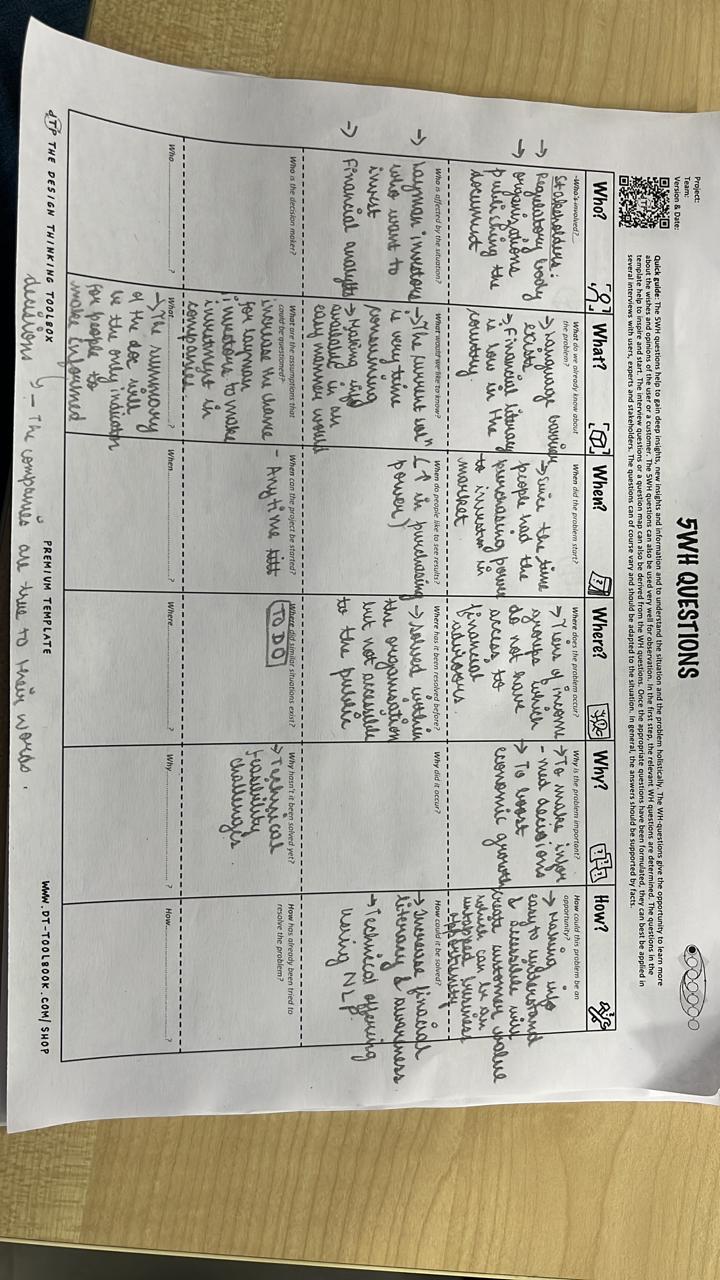 Project:
Team:
Version & Date:
5WH QUESTIONS
Quick guide: The 5WH questions help to gain deep insights, new insights and information and to understand the situation and the problem holistically. The WH-questions give the opportunity to learn more
about the wishes and opinions of the user or a customer. The 5WH questions can also be used very well for observation. In the first step, the relevant WH questions are determined. The questions in the
template help to inspire and start. The interview questions or a question map can also be derived from the WH questions. Once the appropriate questions have been formulated, they can best be applied in
several interviews with users, experts and stakeholders. The questions can of course vary and should be adapted to the situation. In general, the answers should be supported by facts.
Who?
What?
When?
Where?
Why?
How?
Who's involved?
Stakeholders:
→ Regulatory body
→ organizations
publishing the
document
What do we already know about
the problem?
→ Language barrier
exists
→ Financial literacy
is low in the
country.
When did the problem start?
→ Since the time
people had the
purchasing power
to invest in
market
Where does the problem occur?
→ Tiers of income
groups which
do not have
access to
financial
advisors.
Why is the problem important?
→ To make infor
- med decisions
→ To boost
economic growth
How could this problem be an
opportunity?
→ Making info
easy to understand
& accessible will
create customer value
which can be an
untapped business
opportunity
Who is affected by the situation?
→ Layman investors
who want to
invest
→ Financial analysts
What would we like to know?
→ The current solⁿ
is very time
consuming
→ Making info
available in an
easy manner would
When do people like to see results?
(↑ in purchasing
power)
Where has it been resolved before?
→ solved within
the organisation
but not accessible
to the public
Why did it occur?
How could it be solved?
→ Increase finacial
literacy & awareness
→ Technical offering
using NLP.
Who is the decision maker?
What are the assumptions that
could be questioned?
increase the chance
for layman
investors to make
investment in
companies.
When can the project be started?
- Anytime
Where did similar situations exist?
TO DO
Why hasn't it been solved yet?
→ Technical
feasibility
challenges
How has already been tried to
resolve the problem?
Who..............................?
What..............................?
→ The summary
of the doc will
be the only indicator
for people to
make informed
When..............................?
Where..............................?
Why..............................?
How..............................?
dTP THE DESIGN THINKING TOOLBOX
PREMIUM TEMPLATE
WWW.DT-TOOLBOOK.COM/SHOP
decisions
- The companies are true to their words.